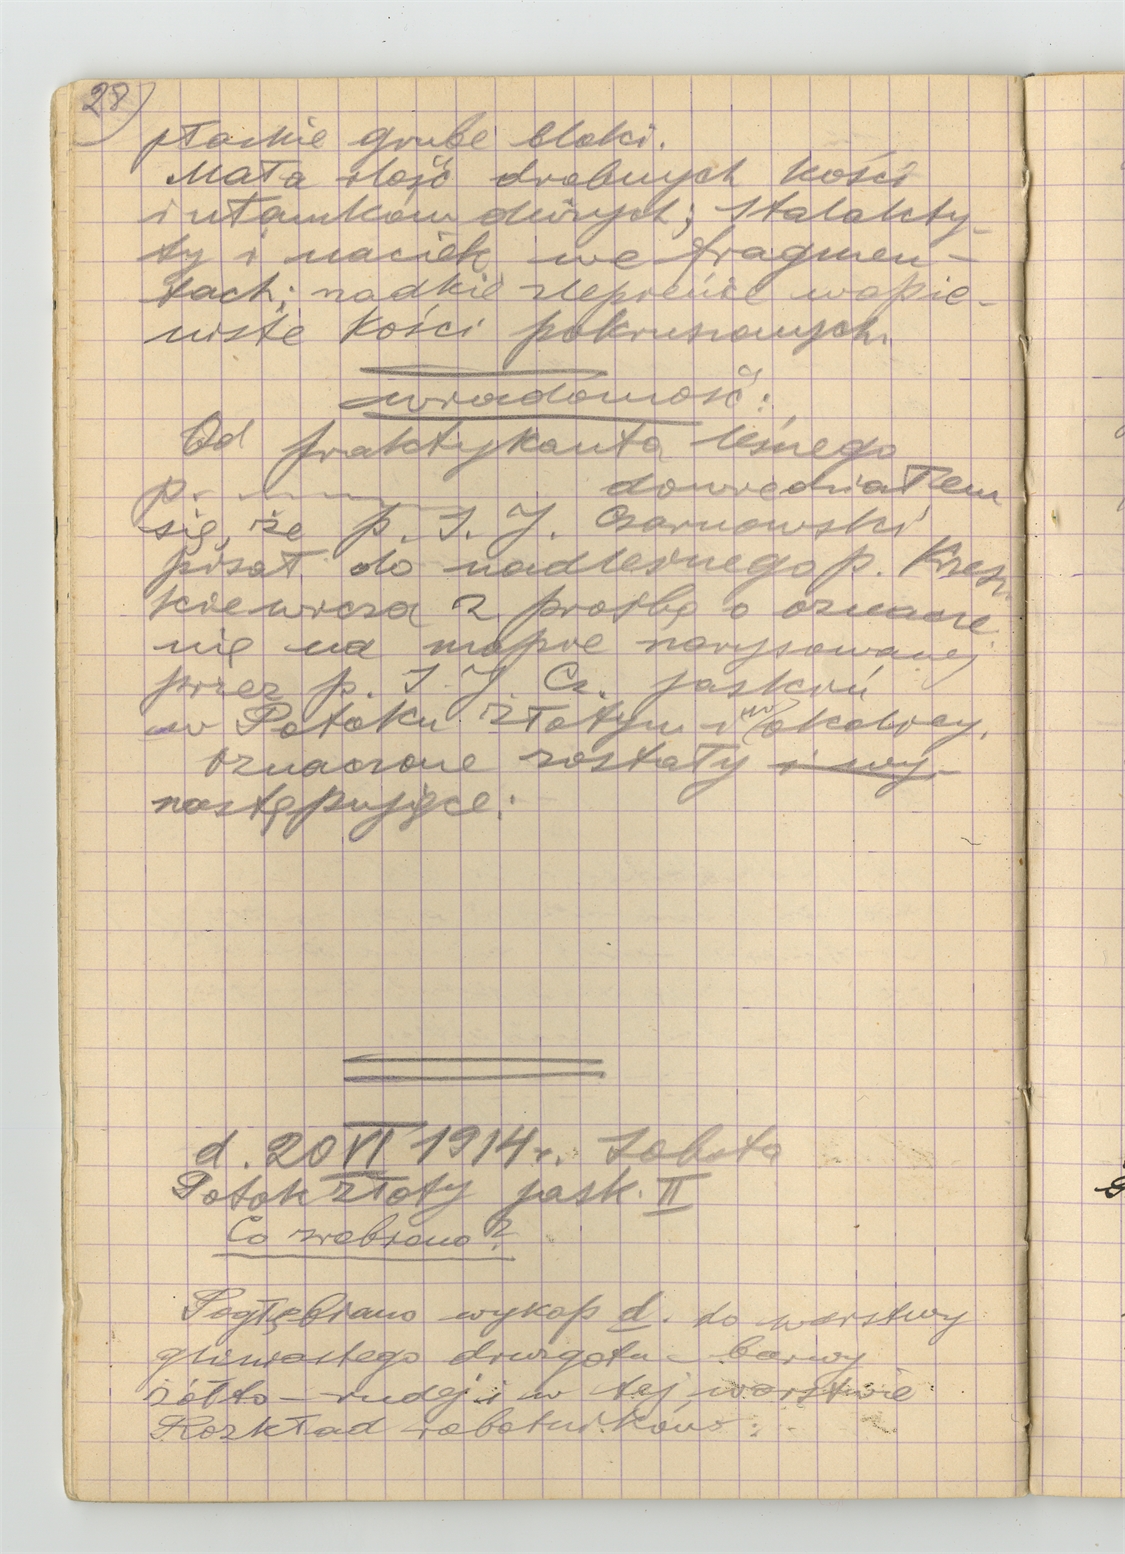 28)
płaskie grube bloki.
Mała ilość drobnych kości
i ułamków dużych; stalakty-
ty i naciek we fragmen-
tach; rzadkie zlepieńce wapie-
niste kości pokruszonych.
Wiadomość:
Od praktykanta leśnego
p. dowiedziałem
się, że p. S. J. Czarnowski
pisał do nadleśnego p. Krzesz
kiewicza z prośbą o oznacze
nie na mapie narysowanej
przez p. S. J. Cz. jaskiń
w Potoku Złotym i w okolicy.
Oznaczone zostały i wy-
następujące:
d. 20 VI 1914 r. Sobota
Potok Złoty jask. II
Co zrobiono?
Pogłębiano wykop d. do warstwy
gliniastego druzgotu – barwy
żółto – rudej i w tej warstwie
Rozkład robotników: